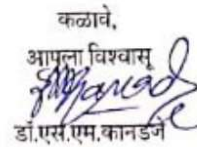 कळावे,
आपला विश्वासू
डॉ.एस.एम.कानडजे